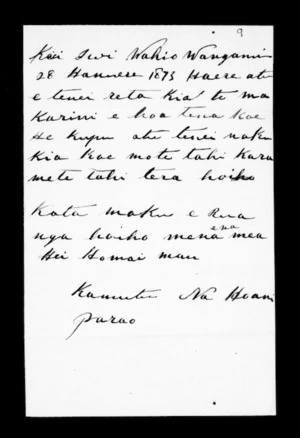 9
Kei Iwi Wahio Wanganui
28 Hanuere 1873 Haere atu
e tenei reta kia te ma
karini e hoa tena koe
He kupu atu tenei naku
kia koe mote tahi Kara
mete tahi tera hoiho
Kota maku e Rua
nga hoiho mena ena mea
Hei Homai mau
Kamutu Na Hoani
parao